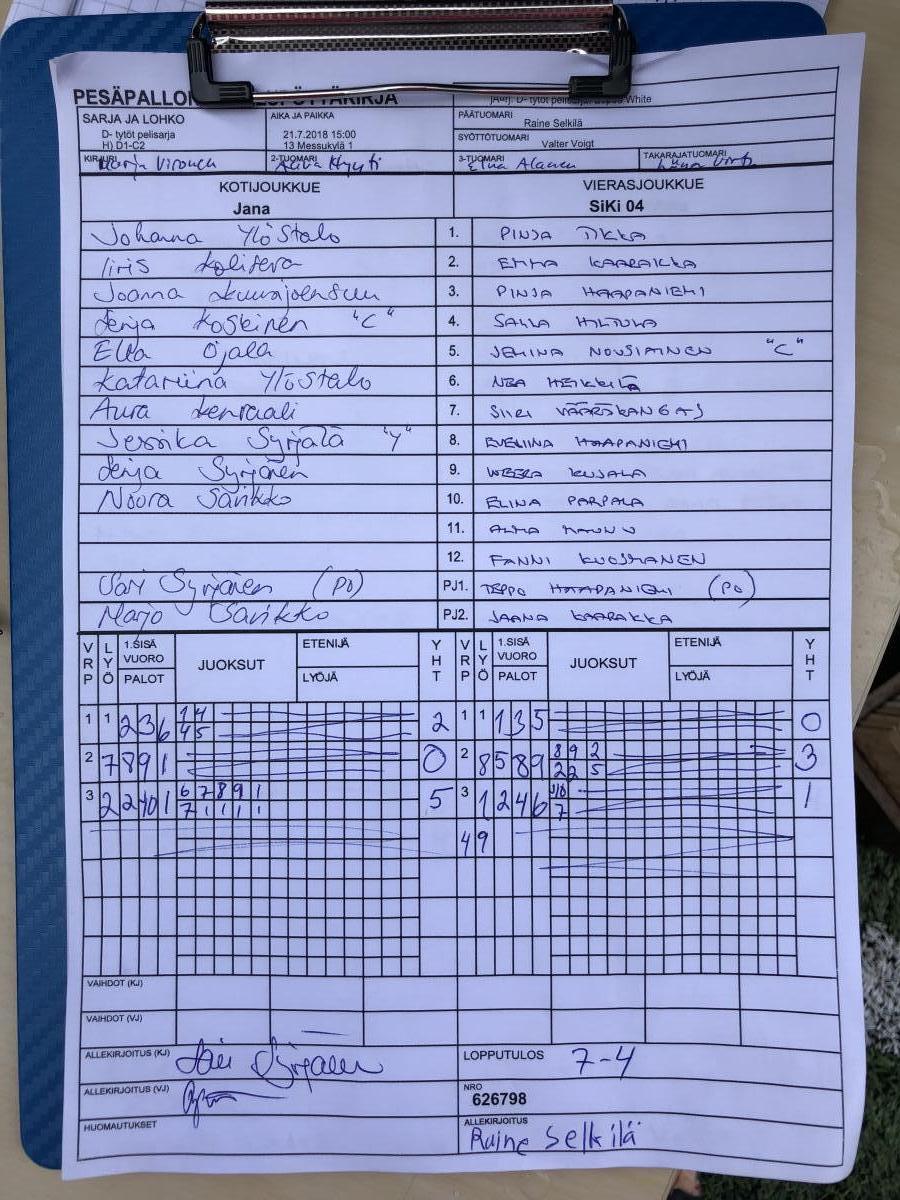 PESÄPALLO
SARJA JA LOHKO
D- tytöt pelisarja
H) D1-C2
AIKA JA PAIKKA
21.7.2018 15:00
13 Messukylä 1
D- tytöt pelisarja White
PÄÄTUOMARI
Raine Selkilä
SYÖTTÖTUOMARI
Valter Voigt
KIRJURI Vironen
2-TUOMARI
3-TUOMARI Elna Alanen
TAKARAJATUOMARI
KOTIJOUKKUE
Jana
VIERASJOUKKUE
SiKi 04
Johanna Ylöstalo 1. PINJA TIKKA
Iiris 2. EMMA KAARAKKA
Joanna Kuurajoensuu 3. PINJA HAAPANIEMI
Senja Koskinen "C" 4. SALLA HILTULA
Ella Ojala 5. JEMINA NOUSIAINEN "C"
Katariina Ylöstalo 6. NEA HEIKKILÄ
Aura Kenraali 7. SIIRI VÄÄRÄKANGAS
Jessika Syrjälä "Y" 8. EVELIINA HAAPANIEMI
Senja Syrjänen 9. WEERA KUJALA
Noora Särkkö 10. ELINA PARPALA
11. ALMA MAUNU
12. FANNI KUOSMANEN
Sari Syrjänen (PO) PJ1. TEPPO HAAPANIEMI (PO)
Marjo Särkkö PJ2. JAANA KAARAKKA
VRP LYÖ 1.SISÄ VUORO PALOT JUOKSUT ETENIJÄ LYÖJÄ YHT VRP LYÖ 1.SISÄ VUORO PALOT JUOKSUT ETENIJÄ LYÖJÄ YHT
1 1 2 3 6 1 4 2 1 1 1 3 5 0
4 5
2 7 8 9 1 0 2 8 5 8 9 8 9 2 3
2 2 5
3 2 2 10 1 6 7 8 9 1 5 3 1 2 4 6 10 1
7 1 1 1 1 7
4 9
VAIHDOT (KJ)
VAIHDOT (VJ)
ALLEKIRJOITUS (KJ) Sari Syrjänen
LOPPUTULOS 7-4
ALLEKIRJOITUS (VJ)
NRO
626798
HUOMAUTUKSET
ALLEKIRJOITUS
Raine Selkilä